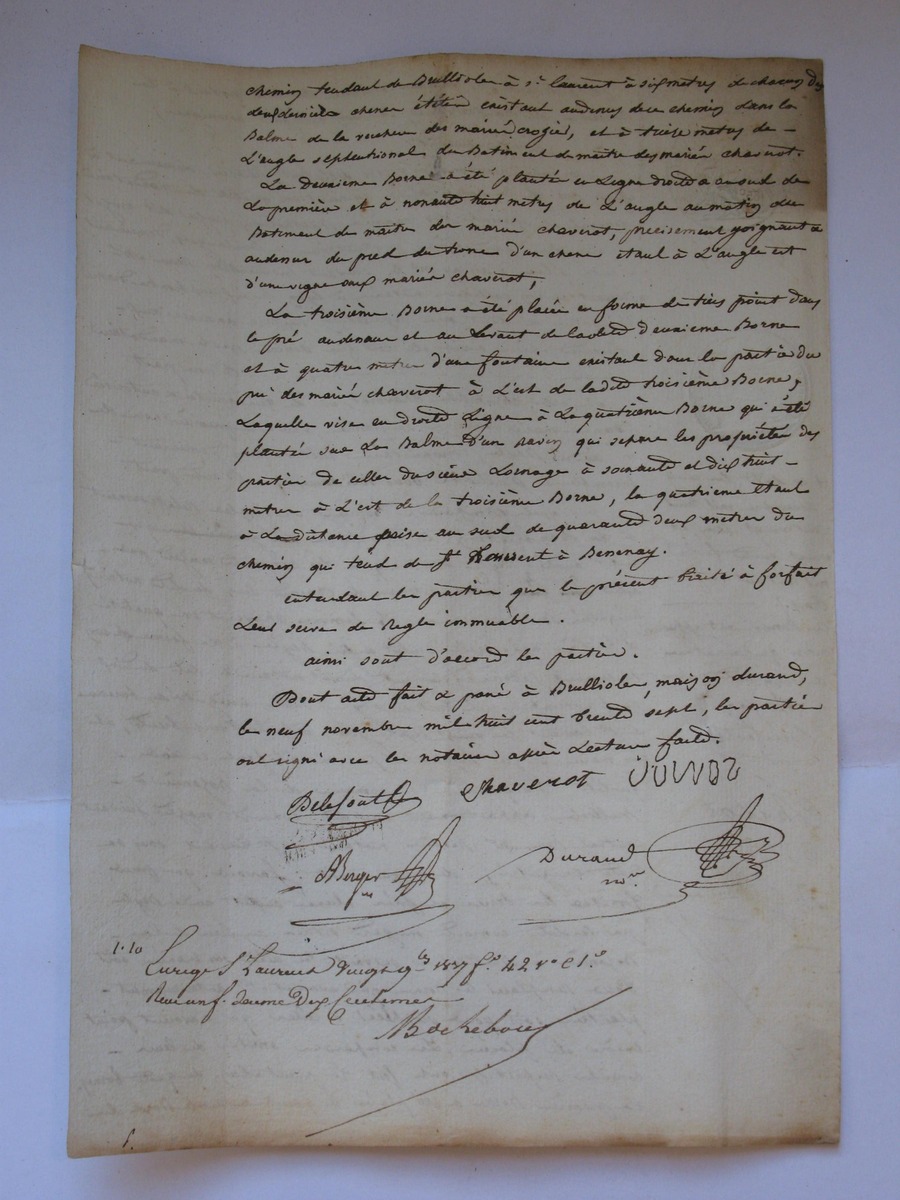 chemin tendant de Brulliole à St. laurent à six metres de chacun des
deux derniers chene étété existant audessus de ce chemin dans la
Balme de la verchere des mariés crozier, et à treize metres de
L'angle septentrional du Batiment de maitre des mariés chaverot.
La deuxieme Borne a été plantée en Ligne droite au sud de
La première et à nonante huit metres de L'angle au matin du
Batiment de maitre des mariés chaverot, précisement joignant
audessus du pied du tronc d'un chene etant à L'angle est
d'une vigne aux mariés chaverot,
La troisième Borne a été placée en forme de tiers point dans
le pré audessus et au Levant de ladite deuxieme Borne
et à quatre metres d'une fontaine existant dans la partie du
pré des mariés chaverot à L'est de ladite troisième Borne,
Laquelle vise en droite Ligne à La quatrième Borne qui a été
plantée sur La Balme d'un ravin qui separe les propriétés des
parties de celles du sieur Lornage à soixante et dix huit
metres à L'est de la troisième Borne, la quatrieme etant
à La distance prise au sud de quarante deux metres du
chemin qui tend de St Laurent à Bessenay.
entendant les parties que le présent traité à forfait
Leur serve de Regle immuable.
ainsi sont d'accord les parties.
Dont acte fait & passé à Brulliole, maison durand,
le neuf novembre mil huit cent trente sept, les parties
ont signé avec les notaires après Lecture faite.
chaverot
Berger
Durand
nre
1.10
Enregé St Laurent vingt 9bre 1837 fo. 42 ro c 1o.
Reçu un f. decime Dix Centimes